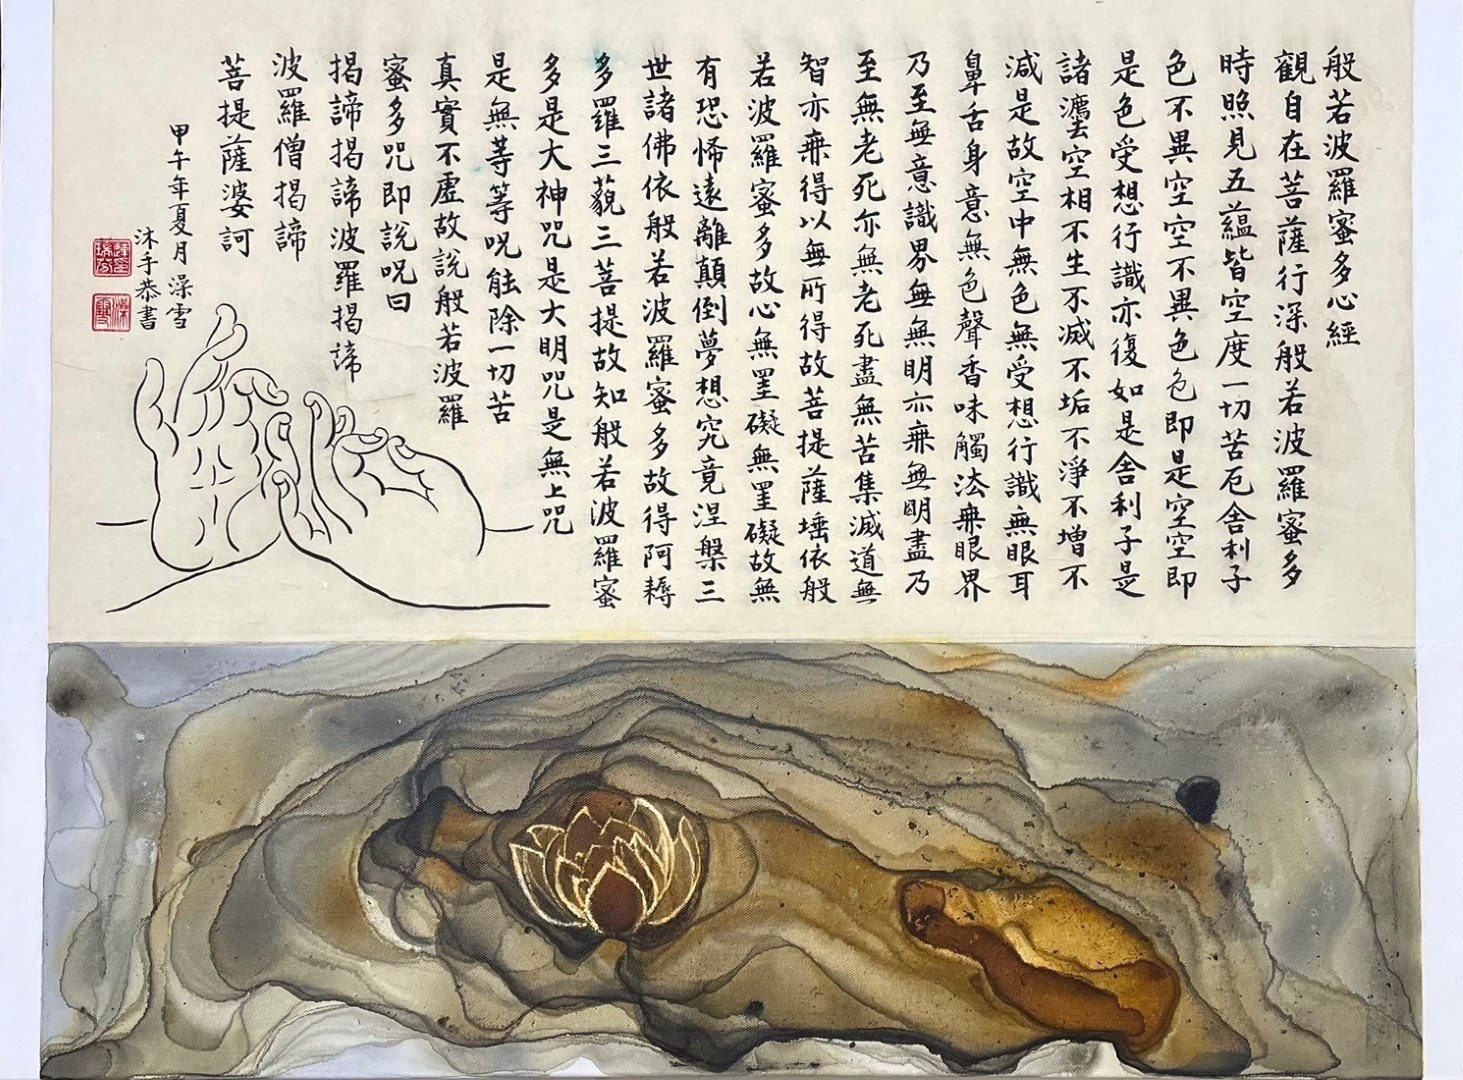 般若波羅蜜多心經
觀自在菩薩行深般若波羅蜜多
時照見五蘊皆空度一切苦厄舍利子
色不異空空不異色色即是空空即
是色受想行識亦復如是舍利子是
諸灋空相不生不滅不垢不淨不增不
減是故空中無色無受想行識無眼耳
鼻舌身意無色聲香味觸法無眼界
乃至無意識界無無明亦無無明盡乃
至無老死亦無老死盡無苦集滅道無
智亦無得以無所得故菩提薩埵依般
若波羅蜜多故心無罣礙無罣礙故無
有恐怖遠離顛倒夢想究竟涅槃三
世諸佛依般若波羅蜜多故得阿耨
多羅三藐三菩提故知般若波羅蜜
多是大神咒是大明咒是無上咒
是無等等呪能除一切苦
真實不虛故說般若波羅
蜜多咒即說呪曰
揭諦揭諦波羅揭諦
波羅僧揭諦
菩提薩婆訶
甲午年夏月 澡雪
沐手恭書
澡雪